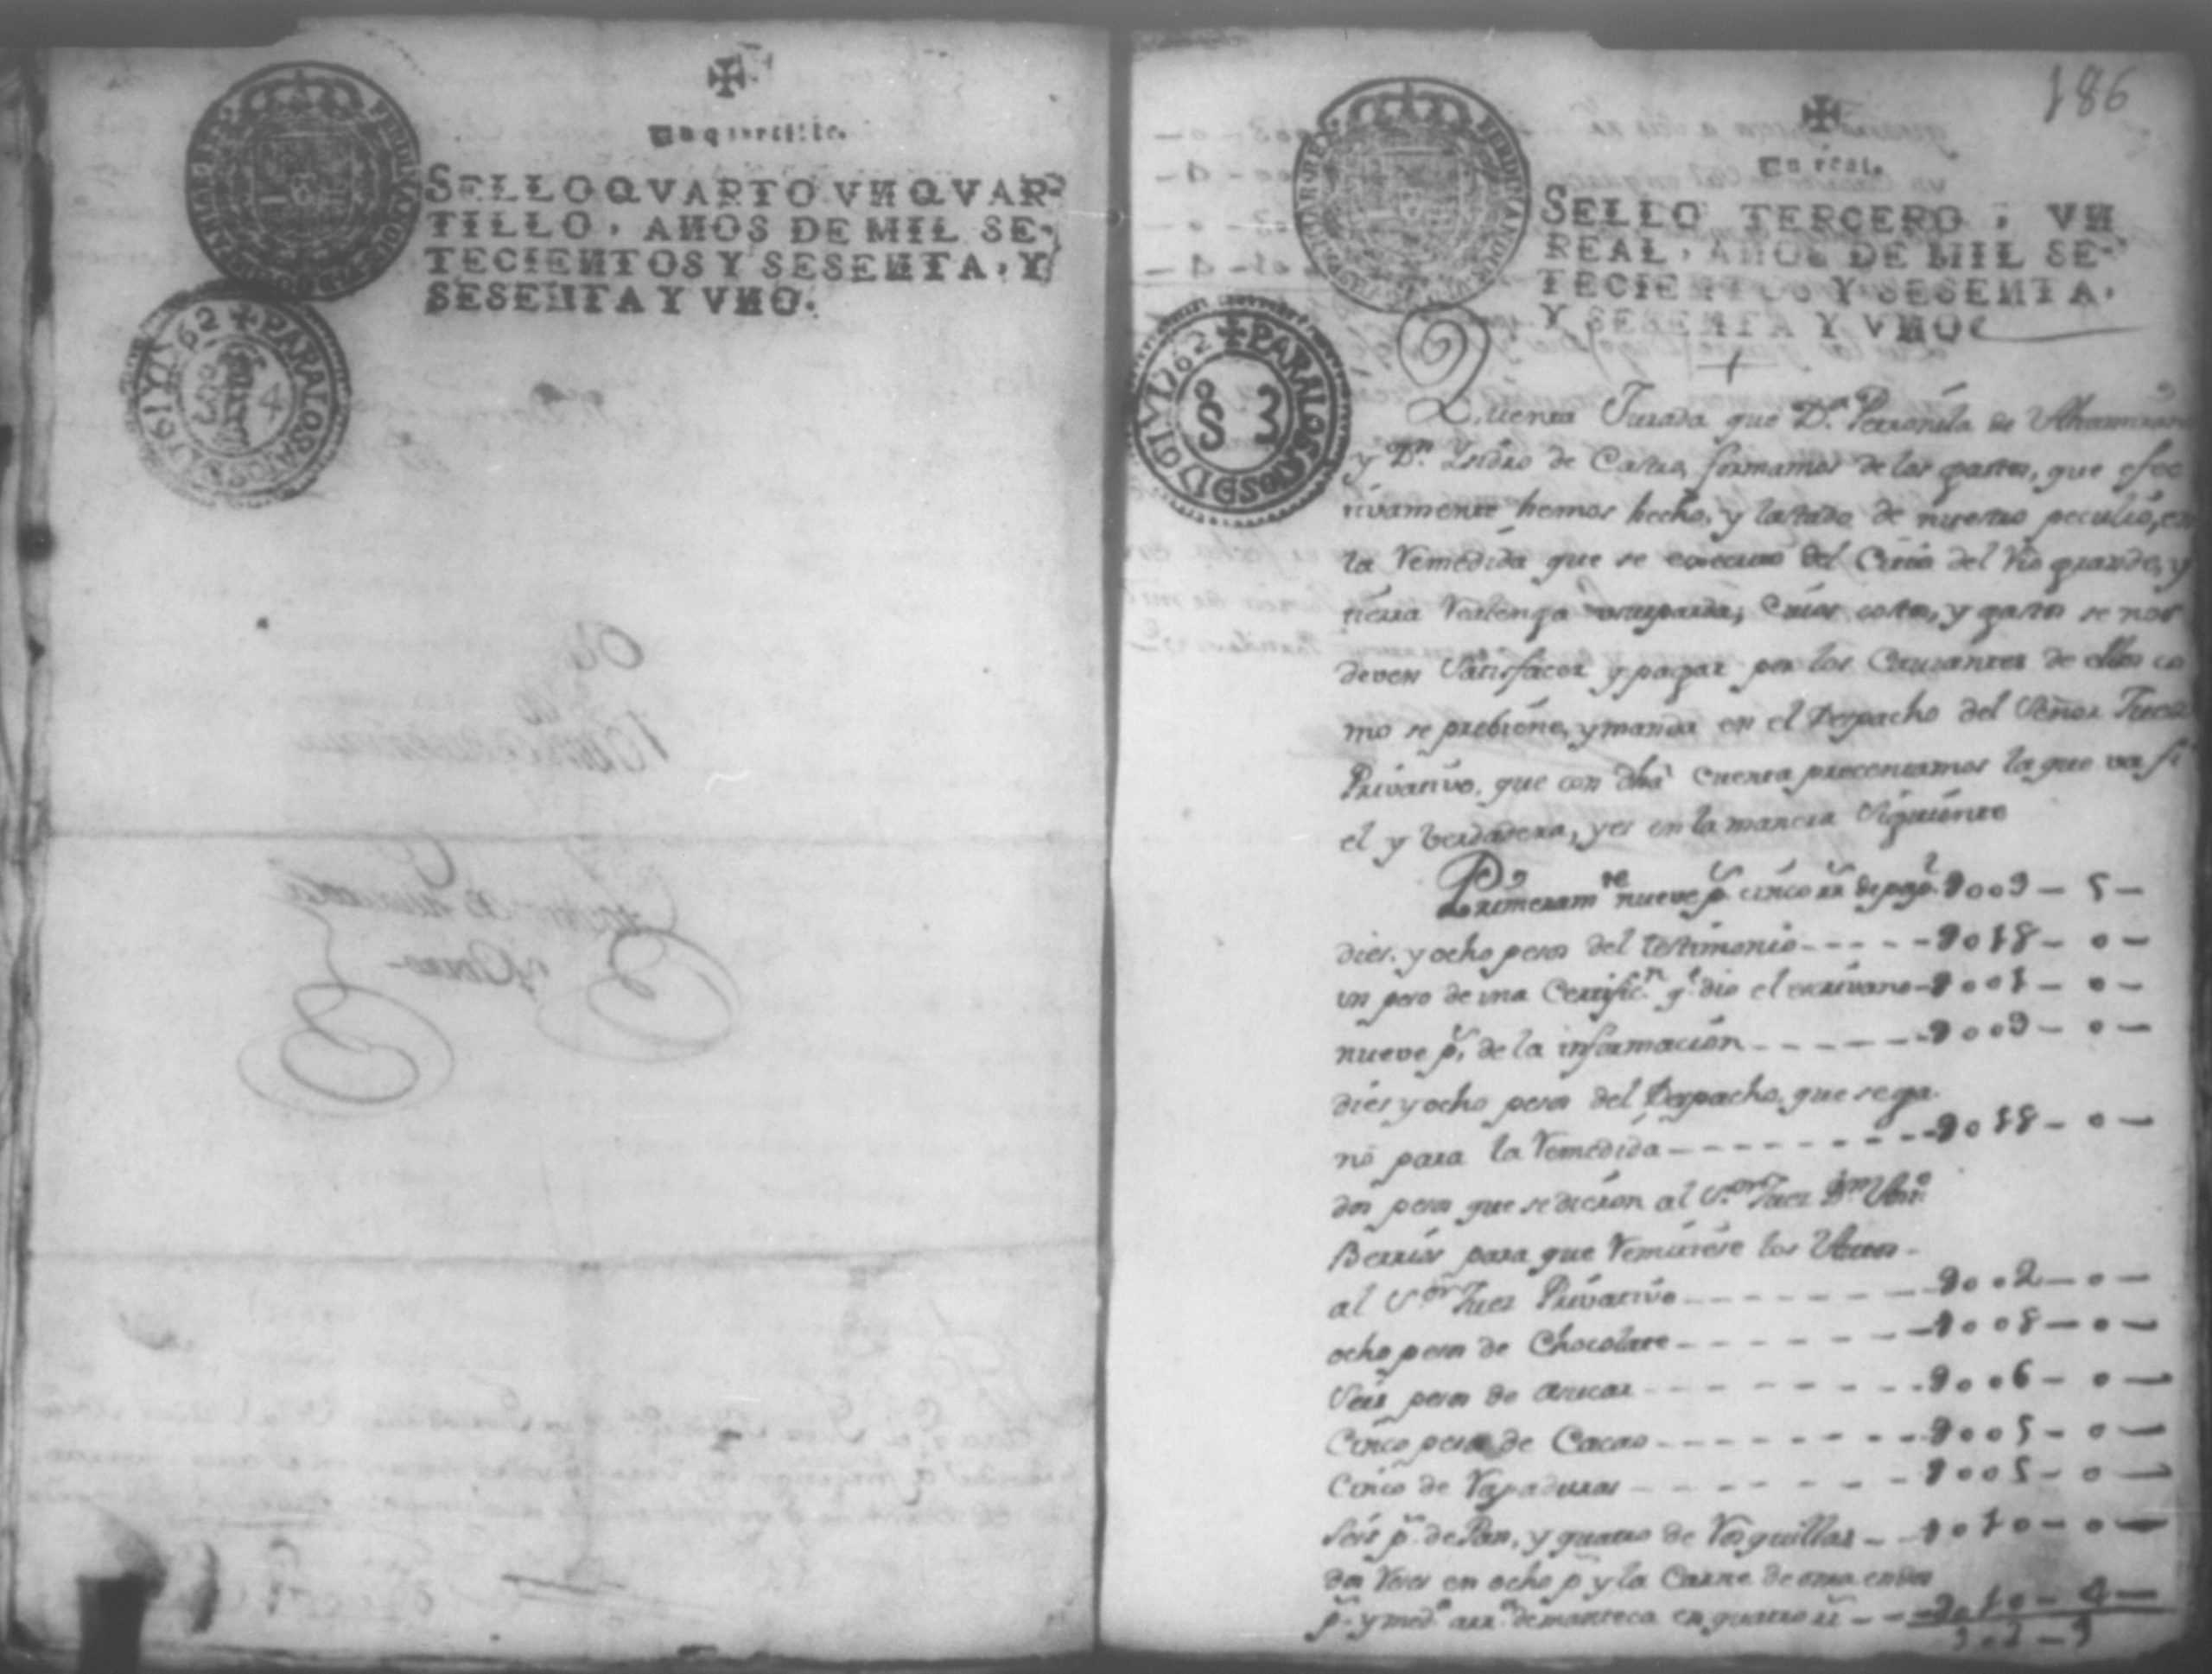 Un quartillo.
SELLO QVARTO VN QVAR-
TILLO, AÑOS DE MIL SE-
TECIENTOS Y SESENTA, Y
SESENTA Y VNO.
PARA LOS AÑOS D 1761 Y 1762
4
186
Un real.
SELLO TERCERO, VN
REAL, AÑOS DE MIL SE-
TECIENTOS Y SESENTA,
Y SESENTA Y VNO
PARA LOS AÑOS D 1761 Y 1762
3
Quenta Jurada que Da. Petronila de
y Dn. Isidro de Castro, formamos de los gastos, que efec
tivamente hemos hecho, y lastado de nuestro peculio, en
la Remedida que se executó del Citio del Rio grande, y
tierra Realenga Cuios costos, y gastos se nos
deven Satisfacer y pagar por los Causantes de ellos co
mo se prebiene, y manda en el Despacho del Señor Juez
Privativo, que con dha Cuenta precentamos la que va fi
el y berdadera, y es en la manera Siguiente
Primeramte nueve ps. cinco rs de papl. 9009-5-
dies y ocho pesos del testimonio-----9018-0-
un peso de una Certificn. qe. dio el escrivano-9001-0-
nueve ps. de la informacion------9009-0-
dies y ocho pesos del Despacho, que se ga.
nó para la Remedida---------9018-0-
dos pesos que se dieron al Sor. Juez Dn
Berrios para que Remitiese los Autos-
al Sor. Juez Privativo--------9002-0-
ocho pesos de Chocolate--------9008-0-
Seis pesos de asucar--------9006-0-
Cinco pesos de Cacao--------9005-0-
Cinco de Rapaduras--------9005-0-
Seis ps. de Pan, y quatro de Rosquillas--9010-0-
dos Reses en ocho ps y la Carne de otra en dos
ps. y meda. arra. de manteca en quatro rs---9010-4-